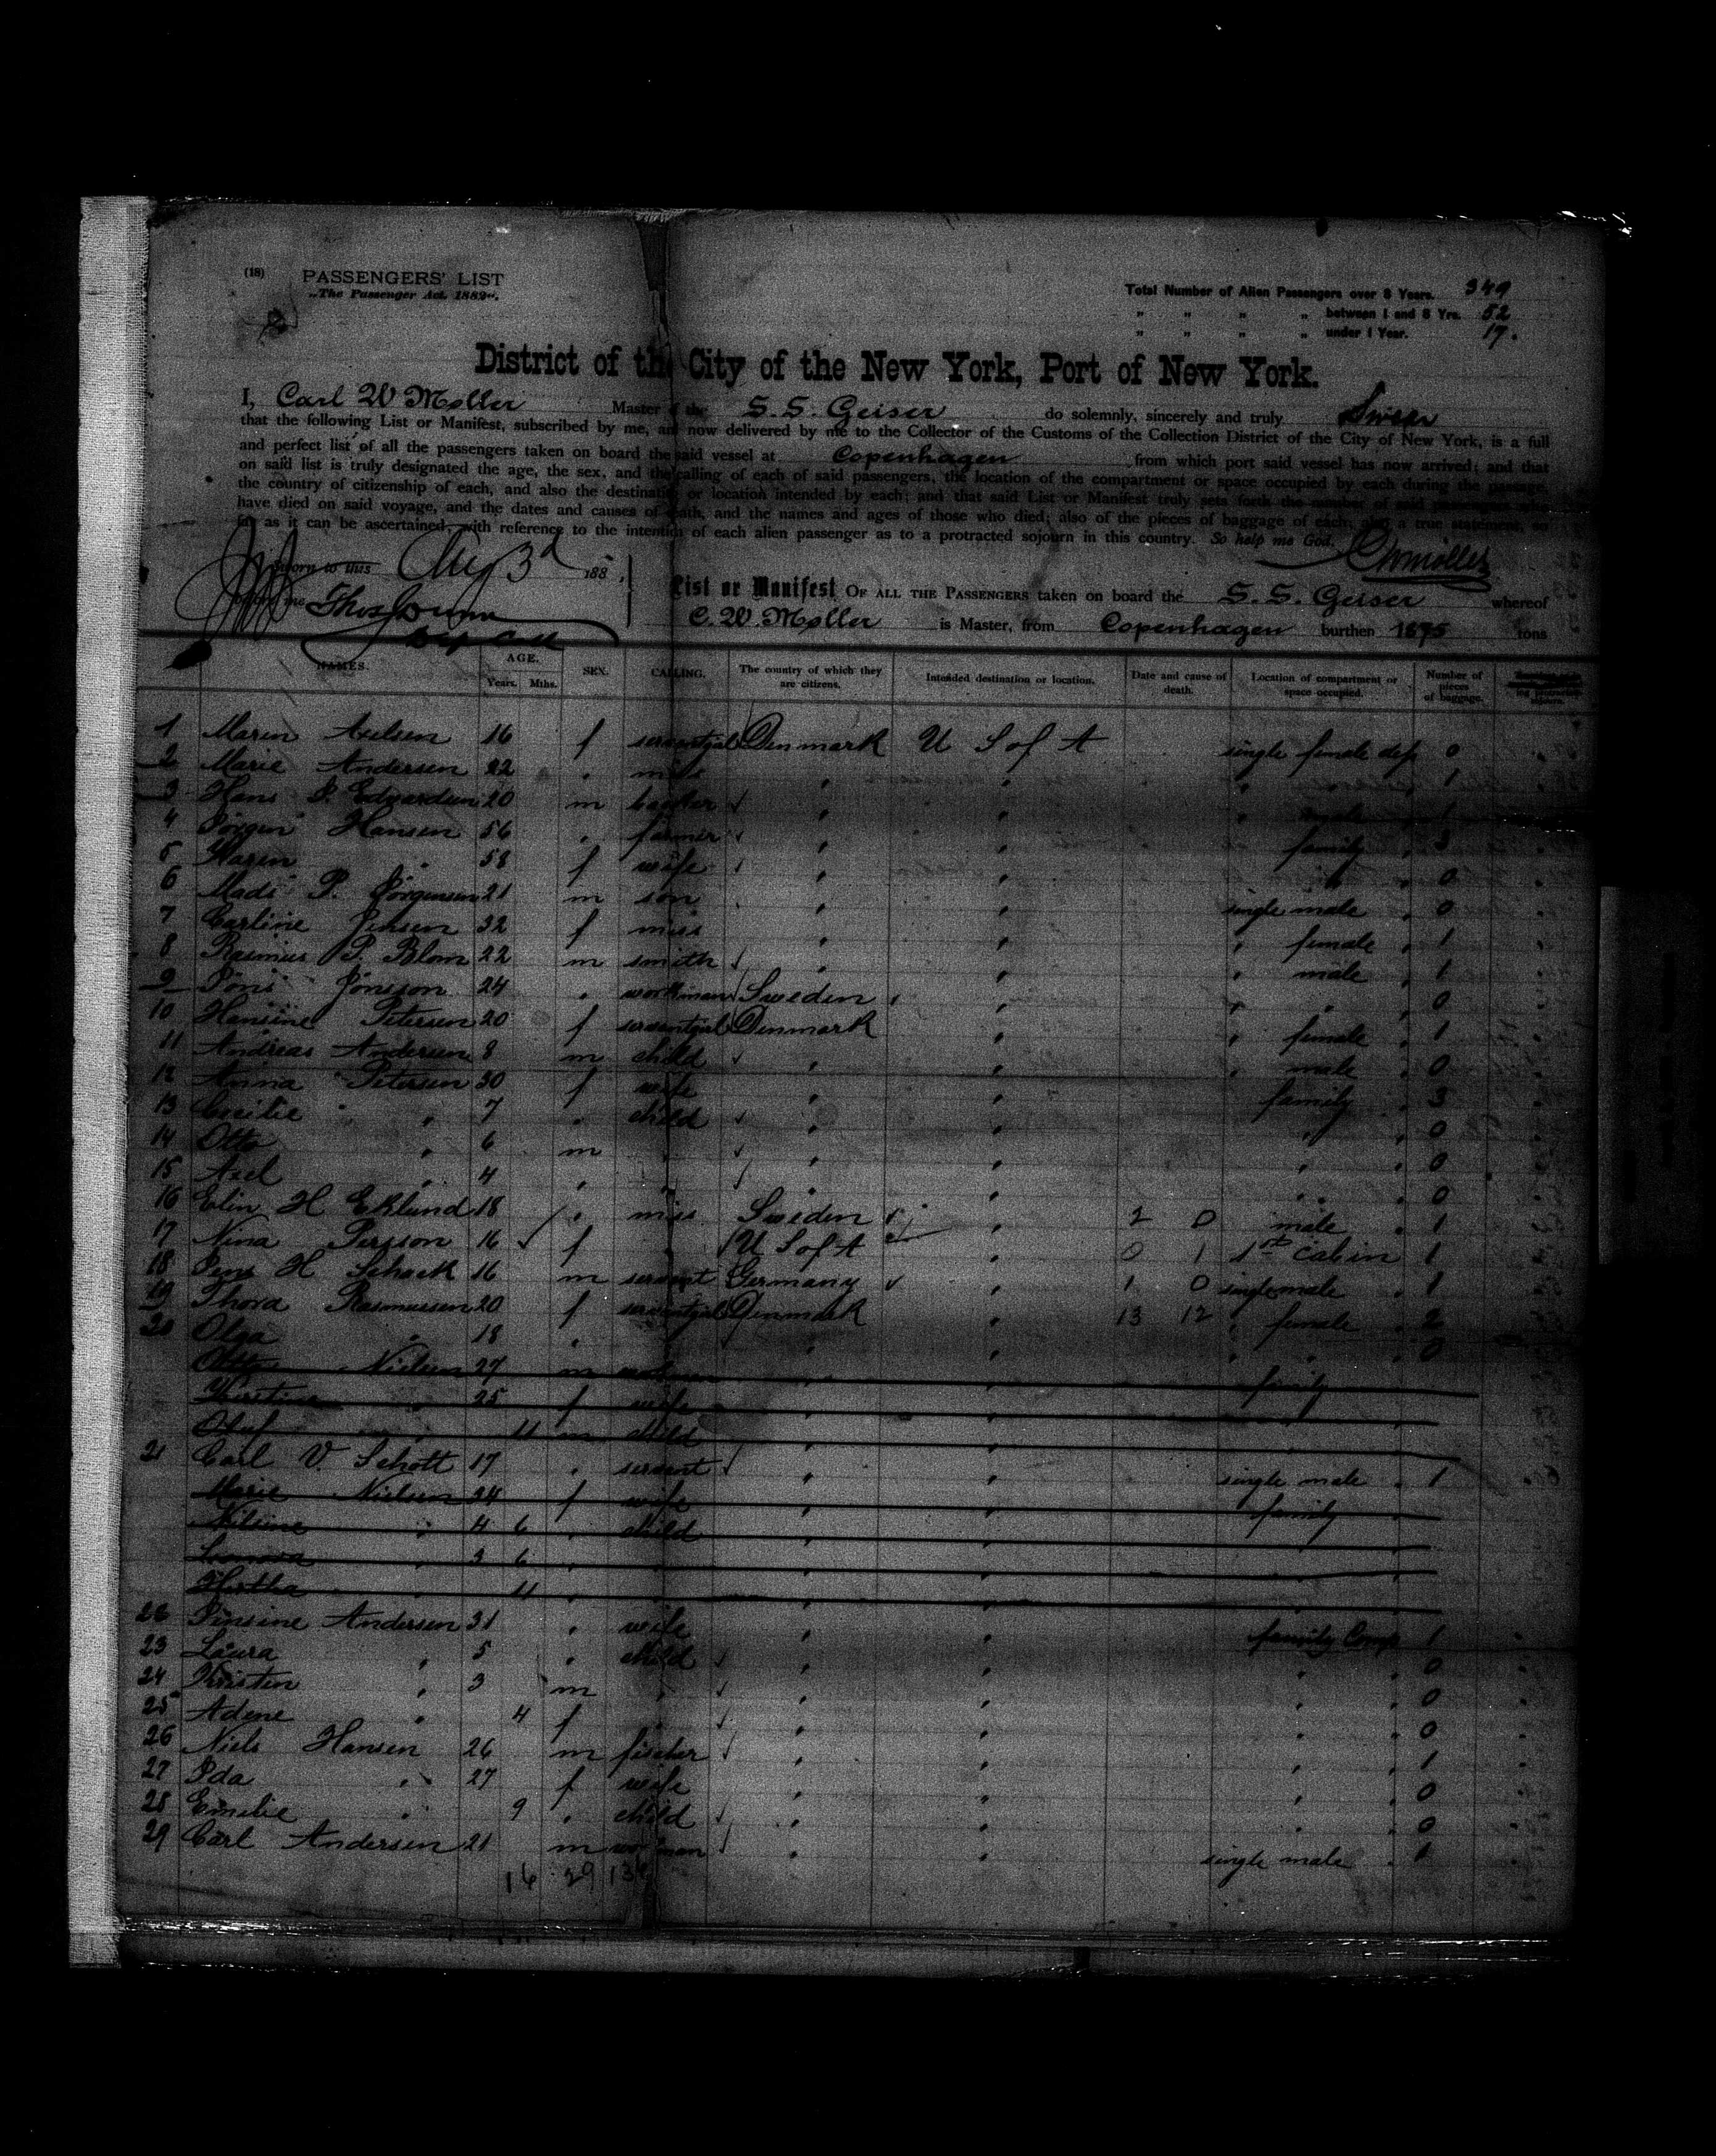 (18) PASSENGERS' LIST
„The Passenger Act. 1882".
Total Number of Alien Passengers over 8 Years. 349
" " " " between 1 and 8 Yrs. 52
" " " " under 1 Year. 17.
District of the City of the New York, Port of New York.
I, Carl W Møller Master of the S. S. Geiser do solemnly, sincerely and truly Swear
that the following List or Manifest, subscribed by me, and now delivered by me to the Collector of the Customs of the Collection District of the City of New York, is a full
and perfect list of all the passengers taken on board the said vessel at Copenhagen from which port said vessel has now arrived; and that
on said list is truly designated the age, the sex, and the calling of each of said passengers, the location of the compartment or space occupied by each during the passage,
the country of citizenship of each, and also the destination or location intended by each; and that said List or Manifest truly sets forth the number of said passengers who
have died on said voyage, and the dates and causes of death, and the names and ages of those who died; also of the pieces of baggage of each; also a true statement, so
far as it can be ascertained, with reference to the intention of each alien passenger as to a protracted sojourn in this country. So help me God.
CWMöller
Sworn to this Aug 3d 188 ,
before me
List or Manifest OF ALL THE PASSENGERS taken on board the S. S. Geiser whereof
C. W. Møller is Master, from Copenhagen burthen 1875 tons
NAMES. AGE. Years. Mths. SEX. CALLING. The country of which they are citizens. Intended destination or location. Date and cause of death. Location of compartment or space occupied. Number of pieces of baggage.
1 Maren Axelsen 16 f servantgirl Denmark U S of A single female dep 0
2 Marie Andersen 22 " miss " " " " 1
3 Hans P. Edvardsen 20 m " " " male " 1
4 Jörgen Hansen 56 " farmer " " family " 3
5 Karen " 58 f wife " " " " 0
6 Mads P. Jörgensen 21 m son " " single male " 0
7 Carline Jensen 32 f miss " " " female " 1
8 Rasmus P. Blom 22 m smith " " " male " 1
9 Jöns Jönsson 24 " workman Sweden " " " 0
10 Hansine Petersen 20 f servantgirl Denmark " " female " 1
11 Andreas Andersen 8 m child " " " male " 0
12 Anna Petersen 30 f wife " " family " 3
13 Cecilie " 7 " child " " " " 0
14 Otto " 6 m " " " " " 0
15 Axel " 4 " " " " " " 0
16 Elin H Eklund 18 " miss Sweden " 2 0 male " 1
17 Nina Persson 16 f U S of A " 0 1 1st Cabin 1
18 Jens H Schack 16 m servant Germany " 1 0 single male " 1
19 Thora Rasmussen 20 f servantgirl Denmark " 13 12 " female " 2
20 Olga " 18 " " " " " " 0
Otto Nielsen 27 m workman " " family
Kirstine " 25 f wife " " " "
Oluf " 11 m child " " " "
21 Carl V. Schott 17 " servant " " single male " 1
Marie Nielsen 24 f wife " " family "
Nilsine " 4 6 " child " " " "
" 3 6 " " " " "
Hertha " 11 " " " "
22 Jensine Andersen 31 " wife " " family Comp 1
23 Laura " 5 " child " " " " 0
24 Kristen " 3 m " " " " " 0
25 Adene " 4 f " " " " " 0
26 Niels Hansen 26 m fischer " " " " 1
27 Ida " 27 f wife " " " " 0
28 Emilie " 9 " child " " " " 0
29 Carl Andersen 21 m workman " " single male " 1
16 29 13